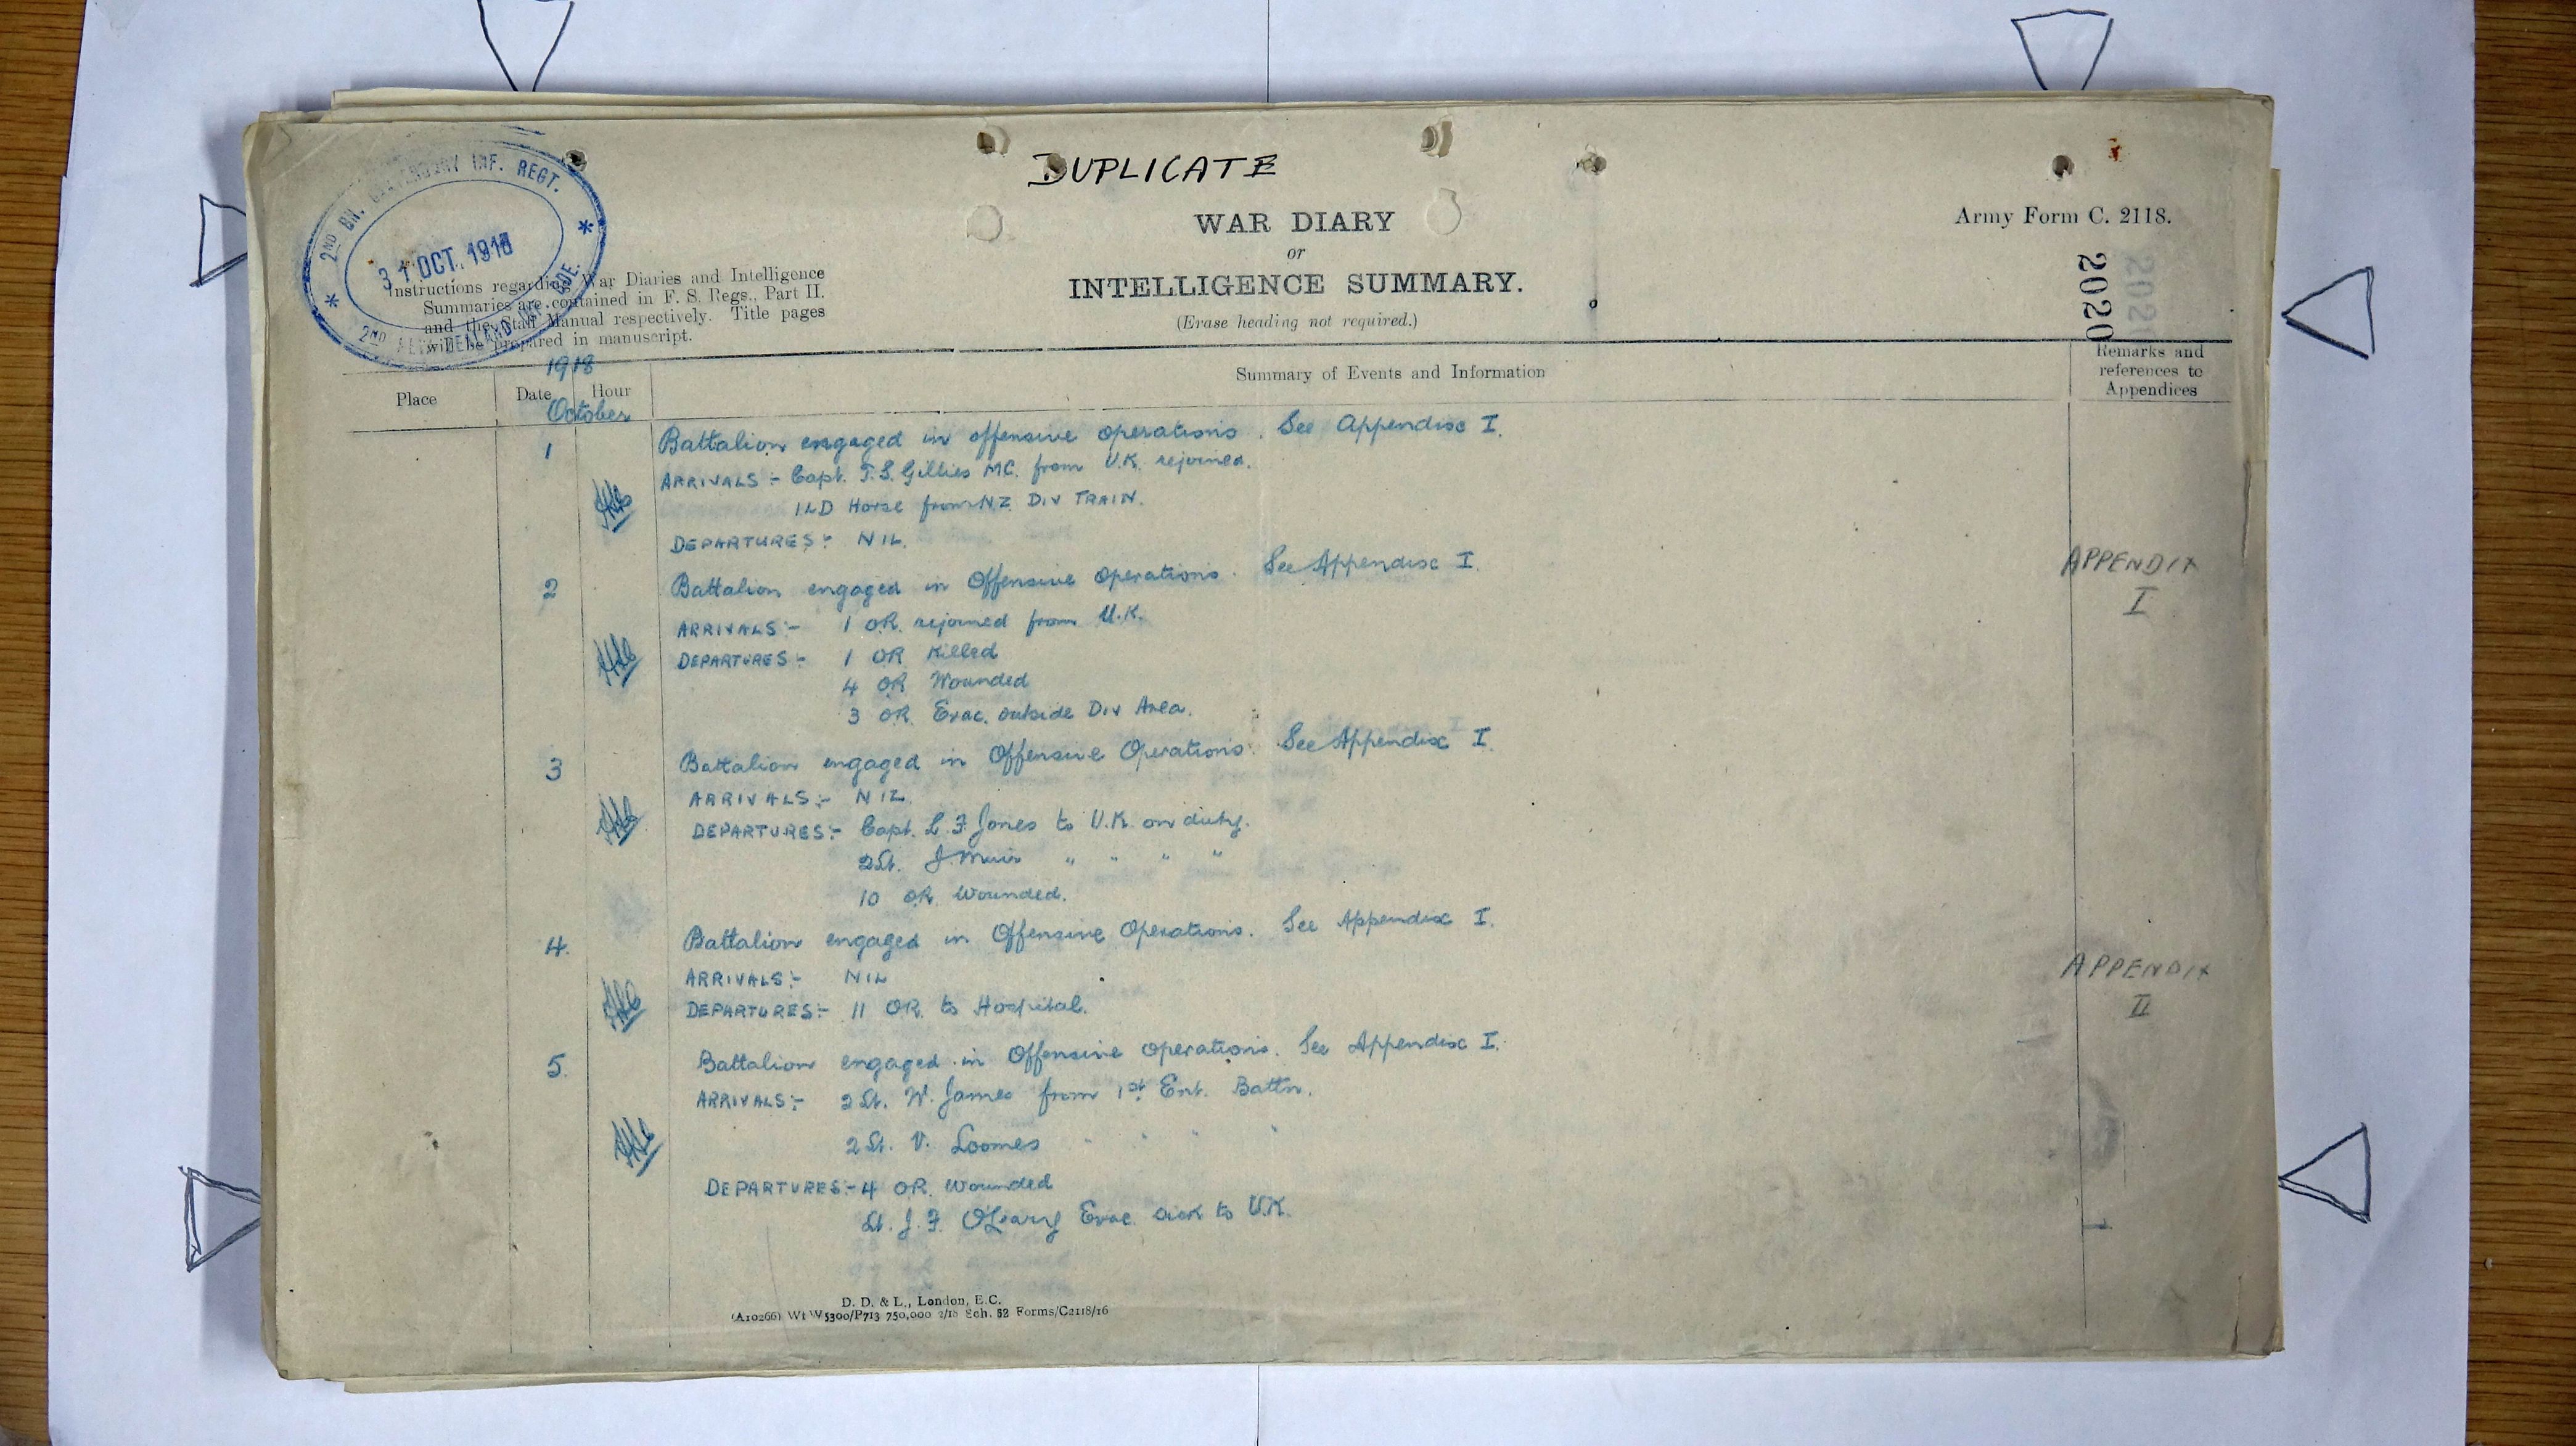 DUPLICATE
2ND BN. CANTERBURY INF. REGT.
31 OCT. 1918
2ND NEW ZEALAND INF. BDE.
Army Form C. 2118.
WAR DIARY
or
INTELLIGENCE SUMMARY.
(Erase heading not required.)
Instructions regarding War Diaries and Intelligence
Summaries are contained in F. S. Regs., Part II.
and the Staff Manual respectively. Title pages
will be prepared in manuscript.
2020
1918
Place
Date
Hour
October
Summary of Events and Information
Remarks and
references to
Appendices
1 Battalion engaged in offensive operations. See Appendix I.
ARRIVALS :- Capt. T.S. Gillies MC. from U.K. rejoined.
1 LD Horse from N.Z. DIV TRAIN.
DEPARTURES :- NIL.
2 Battalion engaged in Offensive Operations. See Appendix I.
APPENDIX
I
ARRIVALS :- 1 OR. rejoined from U.K.
DEPARTURES :- 1 OR Killed
4 OR Wounded
3 OR. Evac. outside Div Area.
3 Battalion engaged in Offensive Operations. See Appendix I.
ARRIVALS :- NIL.
DEPARTURES :- Capt. L. F. Jones to U.K. on duty.
2Lt. J. Muir " " " "
10 OR. Wounded.
4. Battalion engaged in Offensive Operations. See Appendix I.
APPENDIX
II
ARRIVALS :- NIL
DEPARTURES :- 11 OR. to Hospital.
5. Battalion engaged in Offensive Operations. See Appendix I.
ARRIVALS :- 2 Lt. W. James from 1st Ent. Battn.
2 Lt. V. Loomes " " " "
DEPARTURES :- 4 OR. Wounded
Lt. J. F. O'Leary Evac. sick to U.K.
D. D. & L., London, E.C.
(A10266) Wt W5300/P713 750,000 2/18 Sch. 52 Forms/C2118/16